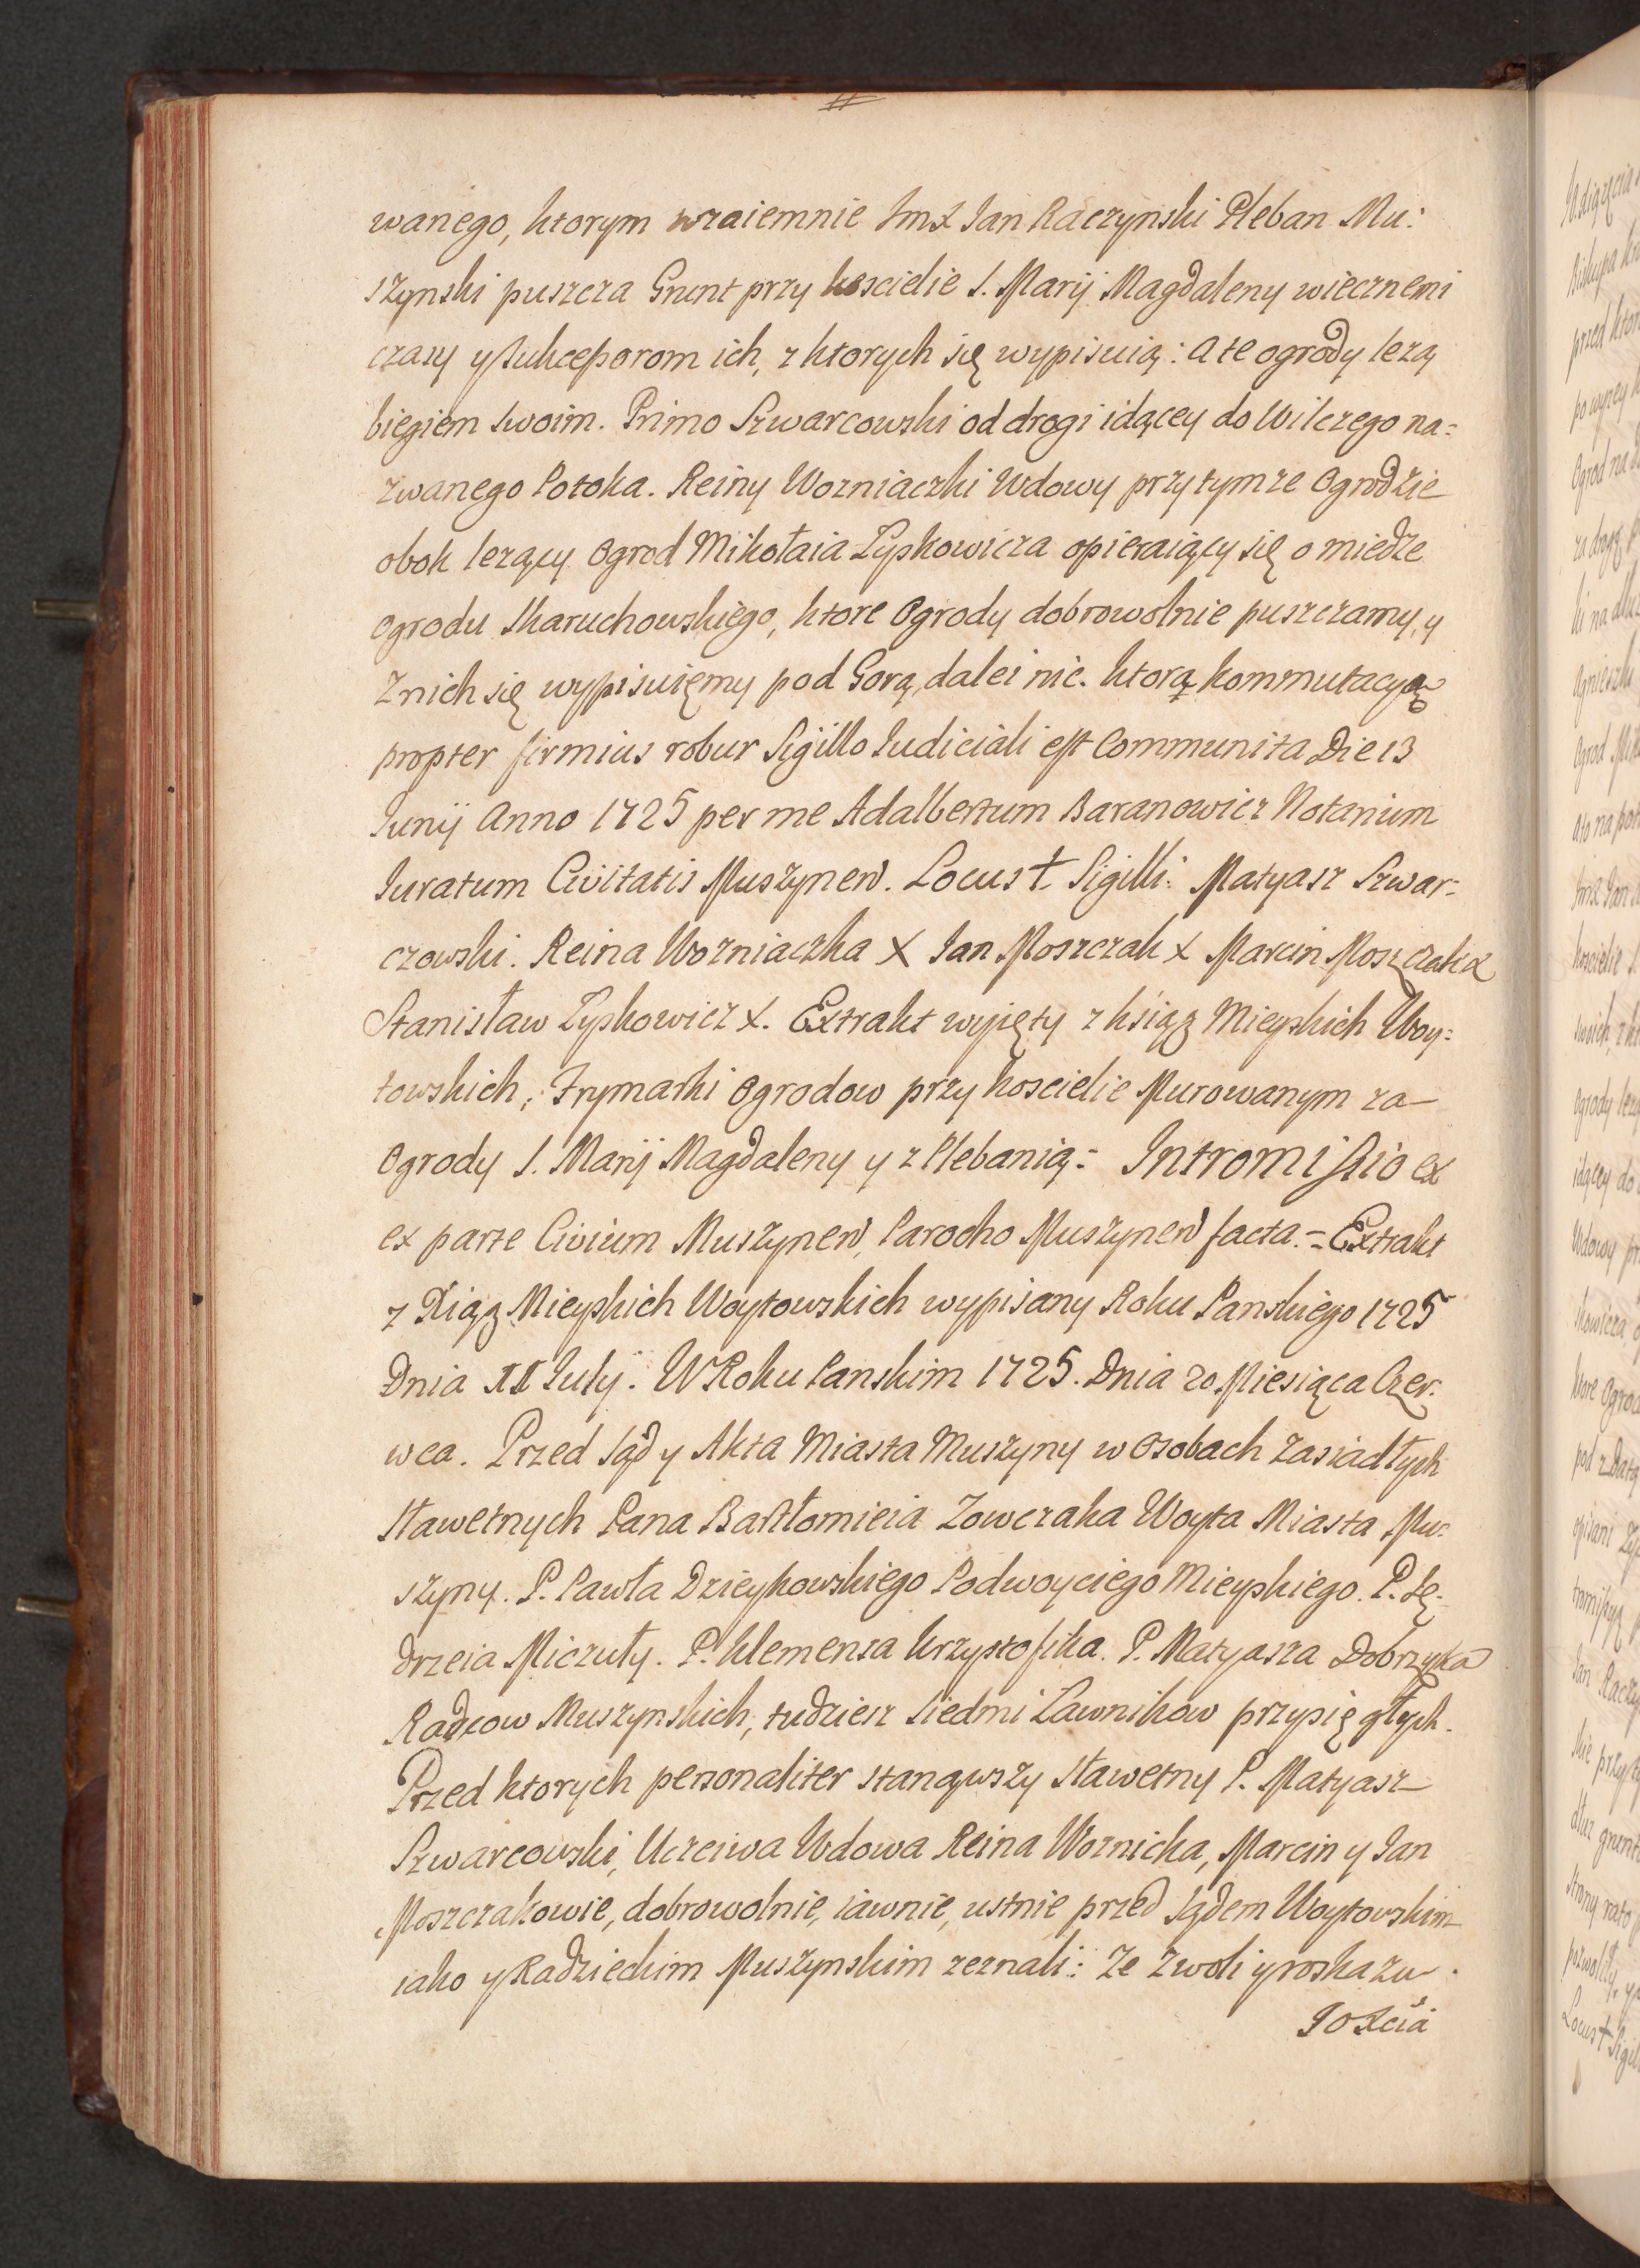 wanego, ktorym wzaiemnie ImX Jan Raczynski Pleban Mu:
szynski puszcza Grunt przy kosciele S. Marij Magdaleny wiecznemi
czasy y sukcessorom ich, z ktorych się wypisuią: a te ogrody lezą
biegiem swoim. Primo Szwarcowski od drogi idącey do Wilczego na=
zwanego Potoka. Reiny Wozniaczki Wdowy przy tymze Ogrodzie
obok lezący Ogrod Mikołaia Zypkowicza opieraiący się o miedze
Ogrodu Skaruchowskiego, ktore Ogrody dobrowolnie puszczamy, y
z nich się wypisuięmy pod Gorą, dalei nic. ktorą kommutacyą
propter firmius robur Sigillo Iudiciali est Communita Die 13
Iunij Anno 1725 per me Adalbertum Baranowicz Notarium
Iuratum Civitatis Muszynen. Locus † Sigilli: Matyasz Szwar=
czowski. Reina Wozniaczka X Jan Moszczak X Marcin Moszczak X
Stanisław Zypkowicz X. Extrakt wyięty z ksiąz Mieyskich Woy=
towskich, Frymarki Ogrodow przy kosciele Murowanym za
Ogrody S. Marij Magdaleny y z Plebanią= Intromissio ex
ex parte Civium Muszynen, Parocho Muszynen facta.= Extrakt
z Xiąz Mieyskich Woytowskich wypisany Roku Panskiego 1725
Dnia 11 Iulij. W Roku Panskim 1725. Dnia 20 Miesiąca Czer:
wca. Przed sąd y Akta Miasta Muszyny w osobach zasiadłych
sławetnych Pana Bartłomieia Zowczaka Woyta Miasta Mu=
szyny. P. Pawła Dzieykowskiego Podwoyciego Mieyskiego. P. Ię=
drzeia Miczuły. P. Klemensa Krzysztofika. P. Matyasza Dobrzyka
Radcow Muszynskich, tudziesz siedmi Ławnikow przysięgłych.
Przed ktorych personaliter stanąwszy sławetny P. Matyasz
Szwarcowski, Uczciwa Wdowa Reina Woznicka, Marcin y Jan
Moszczakowie, dobrowolnie, iawnie, ustnie przed sądem Woytowskim
iako y Radzieckim Muszynskim zeznali: Ze z woli y roskazu
JOXcia